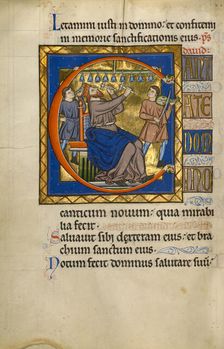 Letamini iusti in domino: et confitemi
ni memorie sanctificationis eius. ps
dauid.
CAN
TATE
DOM
INO
canticum nouum: quia mirabi
lia fecit.
Saluauit sibi dextera eius: et bra
chium sanctum eius.
Notum fecit dominus salutare suu